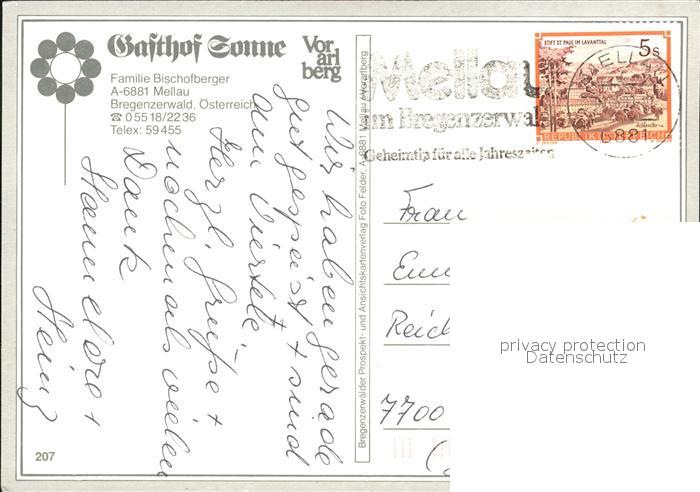 Gasthof Sonne
Vor
arl
berg
Familie Bischofberger
A-6881 Mellau
Bregenzerwald, Österreich
☎ 0 55 18/22 36
Telex: 59 455
Wir haben gerade
gut gespeist + sind
am Viertele.
Herzl. Grüße +
nochmals vielen
Dank
Hannelore +
Heinz
207
Bregenzerwälder Prospekt- und Ansichtskartenverlag Foto Felder, A-6881 Mellau / Vorarlberg
Mellau
im Bregenzerwald
Geheimtip für alle Jahreszeiten
STIFT ST. PAUL IM LAVANTTAL
5s
REPUBLIK ÖSTERREICH
6881
Frau
Reic
7700
privacy protection
Datenschutz